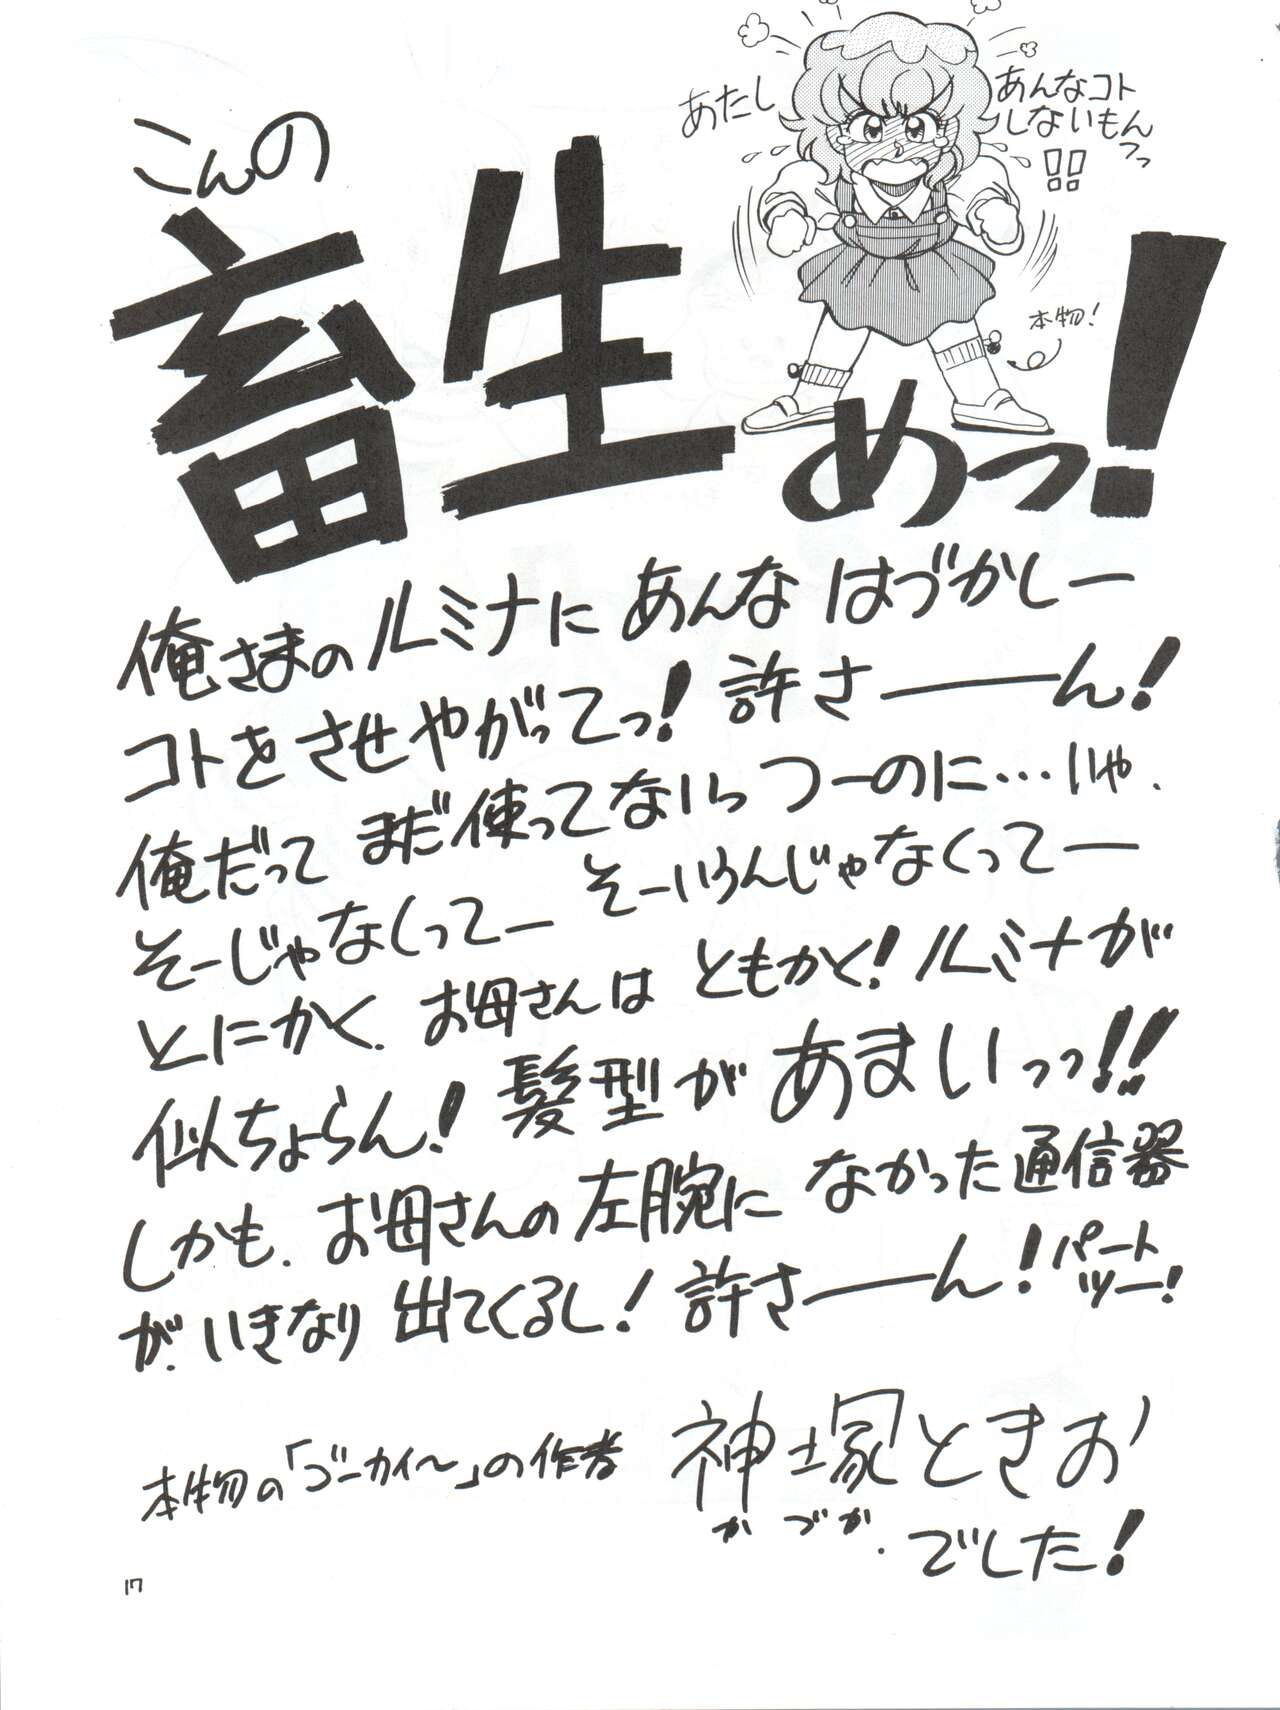 このの
畜生めっ!
あたし
あんなコト
しないもんっっ
!!
本物!
俺さまのルミナにあんなはづかしー
コトをさせやがってっ!許さーーん!
俺だってまだ使ってないっつーのに…いや、
そーじゃなくってーそーいうんじゃなくってー
とにかく、お母さんはともかく!ルミナが
似ちょらん!髪型があまいっっ!!
しかも、お母さんの左腕になかった通信器
が、いきなり出てくるし!許さーーん!パート
ツー!
本物の「ゴーカイ〜」の作者
神塚ときお
かづか
でした!
17